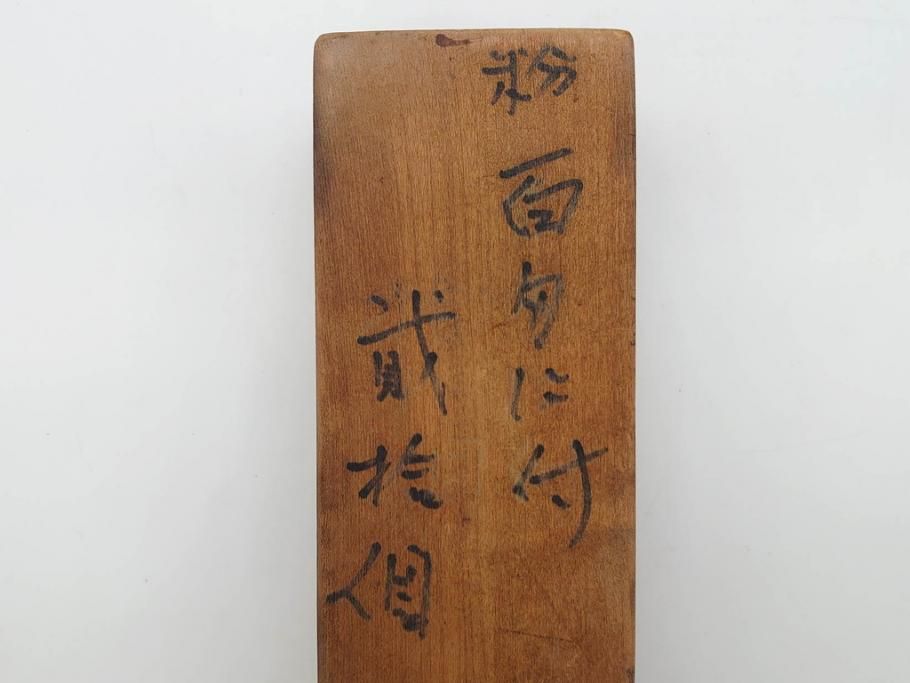 粉百匁に付
貮拾個